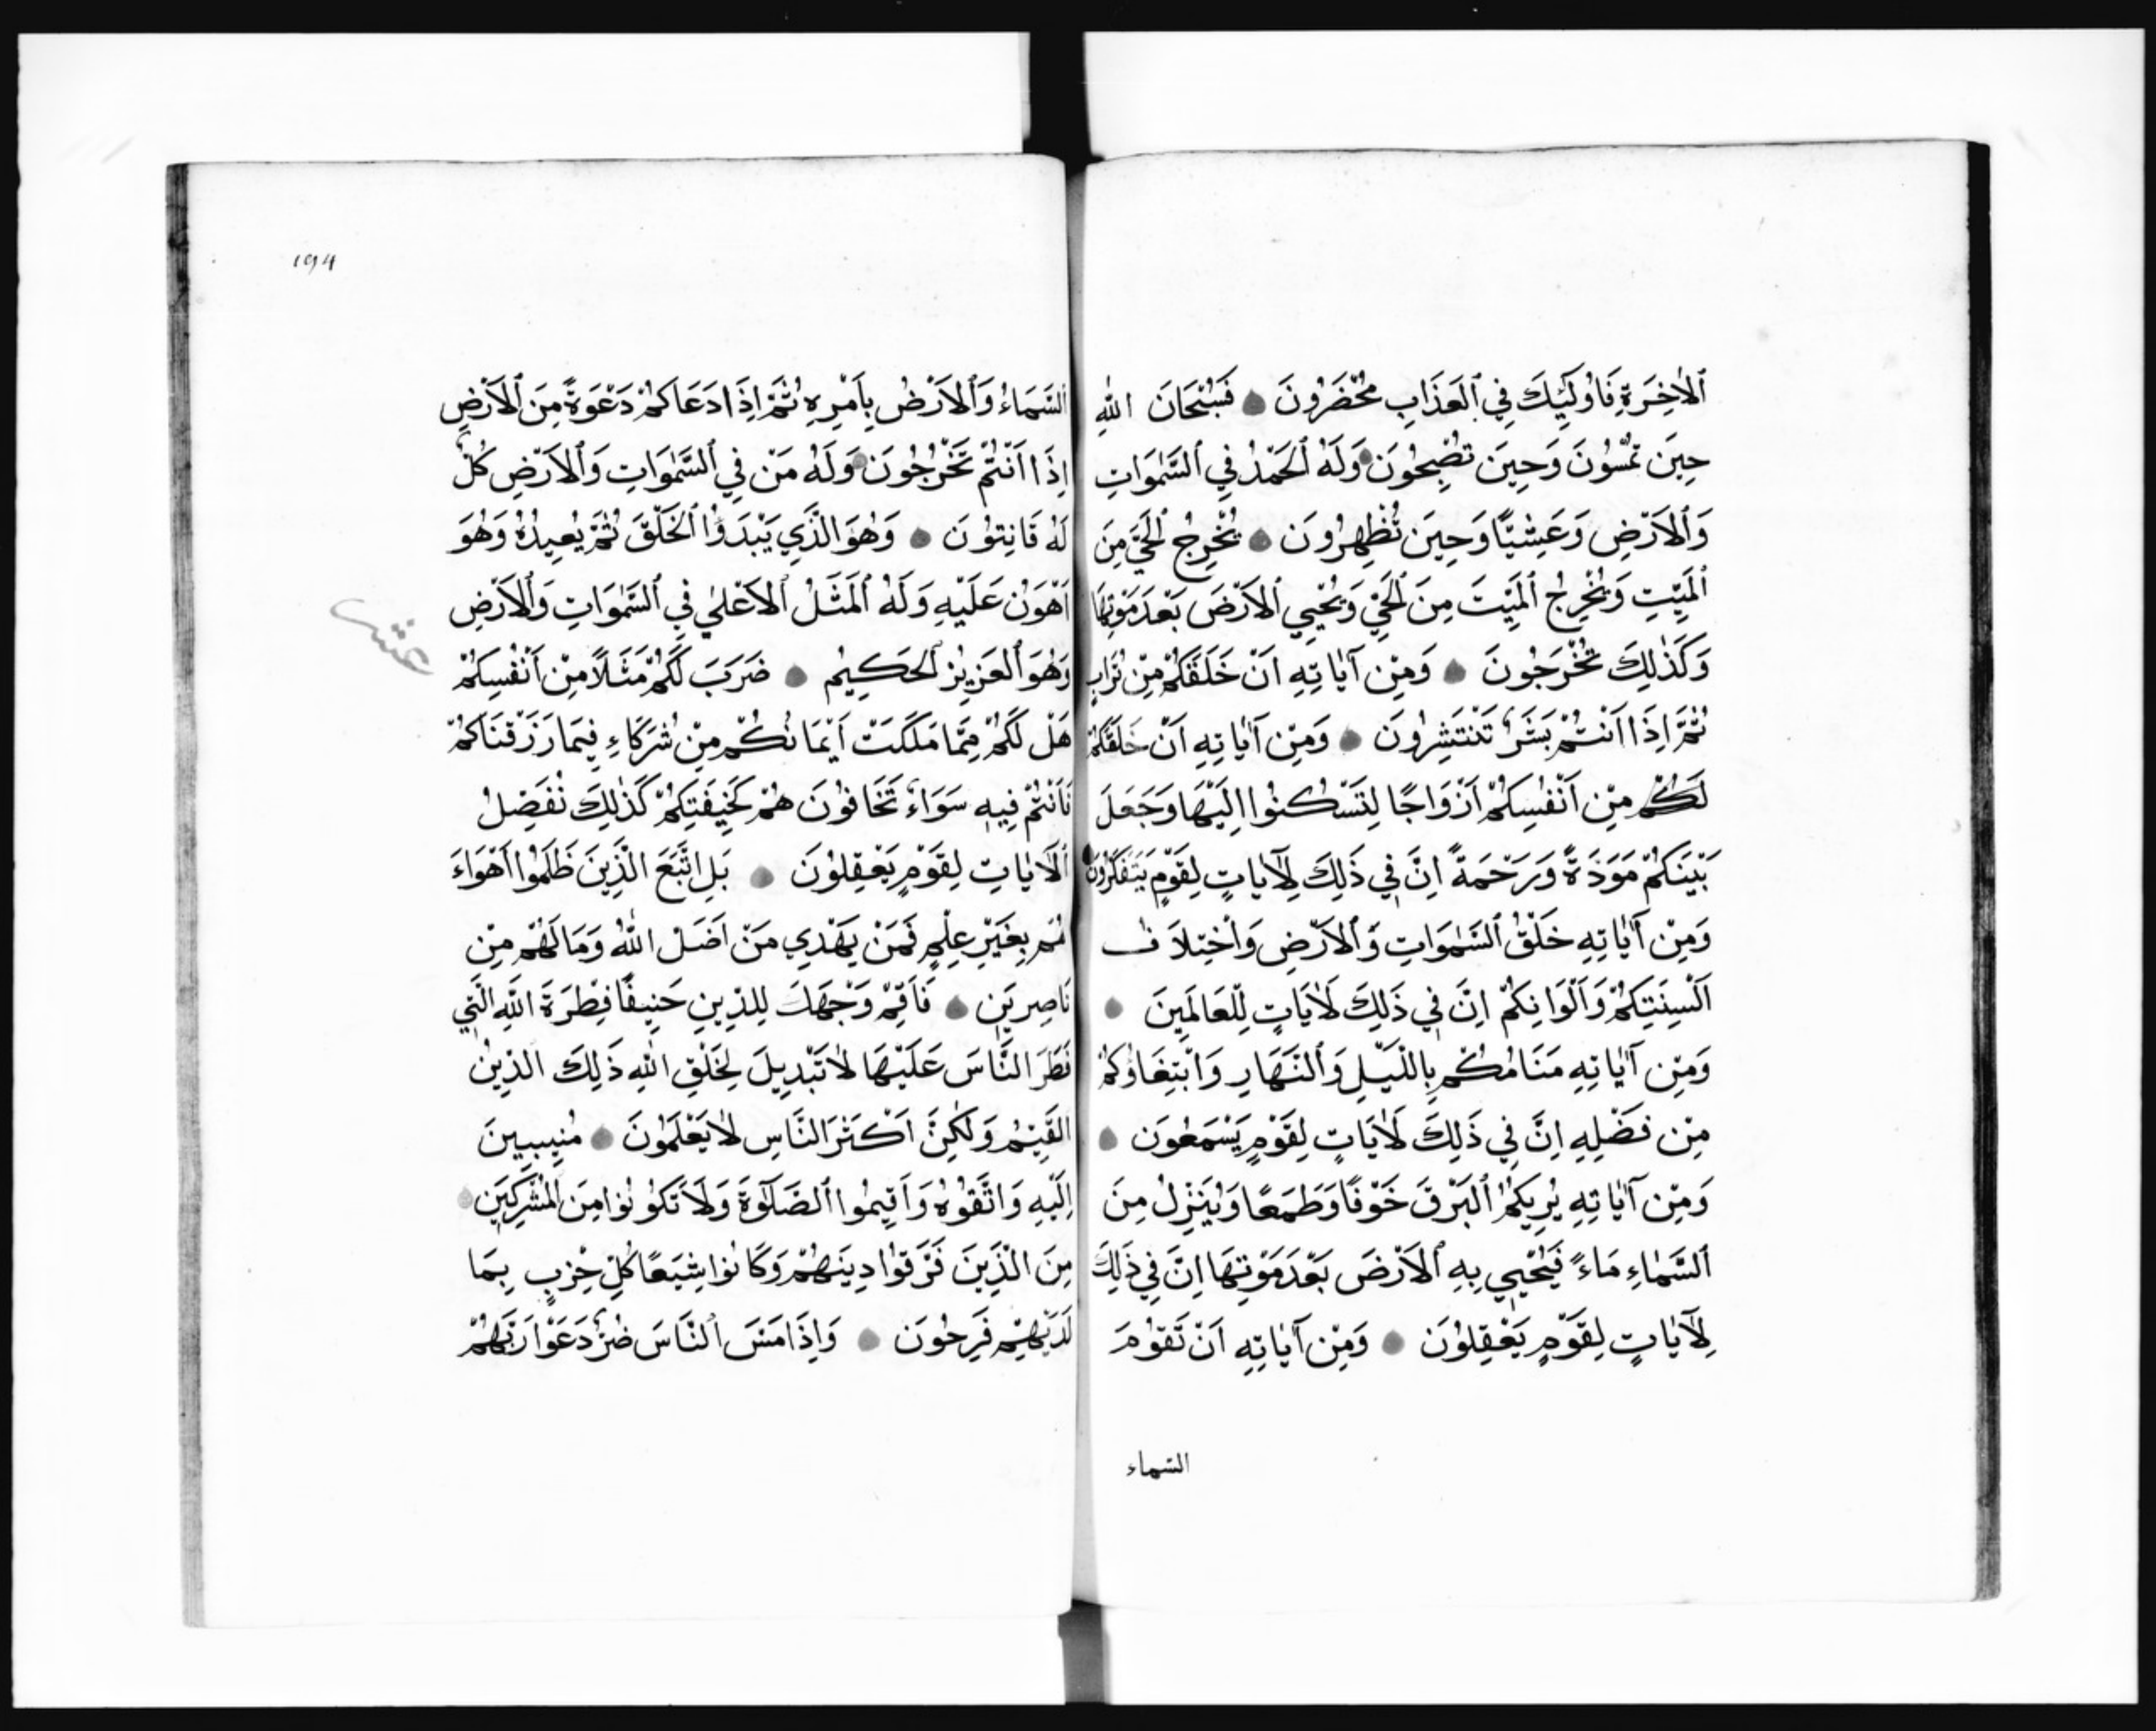 اَلْاٰخِرَةِ فَاُولٰٓئِكَ فِي الْعَذَابِ مُحْضَرُونَ فَسُبْحَانَ اللّٰهِ
حِينَ تُمْسُونَ وَحِينَ تُصْبِحُونَ وَلَهُ الْحَمْدُ فِي السَّمٰوَاتِ
وَالْاَرْضِ وَعَشِيًّا وَحِينَ تُظْهِرُونَ يُخْرِجُ الْحَيَّ مِنَ
الْمَيِّتِ وَيُخْرِجُ الْمَيِّتَ مِنَ الْحَيِّ وَيُحْيِي الْاَرْضَ بَعْدَ مَوْتِهَا
وَكَذٰلِكَ تُخْرَجُونَ وَمِنْ آيَاتِهِ اَنْ خَلَقَكُمْ مِنْ تُرَابٍ
ثُمَّ اِذَا اَنْتُمْ بَشَرٌ تَنْتَشِرُونَ وَمِنْ آيَاتِهِ اَنْ خَلَقَكُمْ
لَكُمْ مِنْ اَنْفُسِكُمْ اَزْوَاجًا لِتَسْكُنُوا اِلَيْهَا وَجَعَلَ
بَيْنَكُمْ مَوَدَّةً وَرَحْمَةً اِنَّ فِي ذٰلِكَ لَاٰيَاتٍ لِقَوْمٍ يَتَفَكَّرُونَ
وَمِنْ آيَاتِهِ خَلْقُ السَّمٰوَاتِ وَالْاَرْضِ وَاخْتِلَافُ
اَلْسِنَتِكُمْ وَاَلْوَانِكُمْ اِنَّ فِي ذٰلِكَ لَاٰيَاتٍ لِلْعَالَمِينَ
وَمِنْ آيَاتِهِ مَنَامُكُمْ بِاللَّيْلِ وَالنَّهَارِ وَابْتِغَاؤُكُمْ
مِنْ فَضْلِهِ اِنَّ فِي ذٰلِكَ لَاٰيَاتٍ لِقَوْمٍ يَسْمَعُونَ
وَمِنْ آيَاتِهِ يُرِيكُمُ الْبَرْقَ خَوْفًا وَطَمَعًا وَيُنَزِّلُ مِنَ
السَّمَاءِ مَاءً فَيُحْيِي بِهِ الْاَرْضَ بَعْدَ مَوْتِهَا اِنَّ فِي ذٰلِكَ
لَاٰيَاتٍ لِقَوْمٍ يَعْقِلُونَ وَمِنْ آيَاتِهِ اَنْ تَقُومَ
السّماء
194
السَّمَاءُ وَالْاَرْضُ بِاَمْرِهِ ثُمَّ اِذَا دَعَاكُمْ دَعْوَةً مِنَ الْاَرْضِ
اِذَا اَنْتُمْ تَخْرُجُونَ وَلَهُ مَنْ فِي السَّمٰوَاتِ وَالْاَرْضِ كُلٌّ
لَهُ قَانِتُونَ وَهُوَ الَّذِي يَبْدَؤُا الْخَلْقَ ثُمَّ يُعِيدُهُ وَهُوَ
اَهْوَنُ عَلَيْهِ وَلَهُ الْمَثَلُ الْاَعْلٰى فِي السَّمٰوَاتِ وَالْاَرْضِ
عشر
وَهُوَ الْعَزِيزُ الْحَكِيمُ ضَرَبَ لَكُمْ مَثَلًا مِنْ اَنْفُسِكُمْ
هَلْ لَكُمْ مِمَّا مَلَكَتْ اَيْمَانُكُمْ مِنْ شُرَكَاءَ فِيمَا رَزَقْنَاكُمْ
فَاَنْتُمْ فِيهِ سَوَاءٌ تَخَافُونَ هُمْ كَخِيفَتِكُمْ كَذٰلِكَ نُفَصِّلُ
الْاٰيَاتِ لِقَوْمٍ يَعْقِلُونَ بَلِ اتَّبَعَ الَّذِينَ ظَلَمُوا اَهْوَاءَ
هُمْ بِغَيْرِ عِلْمٍ فَمَنْ يَهْدِي مَنْ اَضَلَّ اللّٰهُ وَمَا لَهُمْ مِنْ
نَاصِرِينَ فَاَقِمْ وَجْهَكَ لِلدِّينِ حَنِيفًا فِطْرَةَ اللّٰهِ الَّتِي
فَطَرَ النَّاسَ عَلَيْهَا لَا تَبْدِيلَ لِخَلْقِ اللّٰهِ ذٰلِكَ الدِّينُ
الْقَيِّمُ وَلٰكِنَّ اَكْثَرَ النَّاسِ لَا يَعْلَمُونَ مُنِيبِينَ
اِلَيْهِ وَاتَّقُوهُ وَاَقِيمُوا الصَّلٰوةَ وَلَا تَكُونُوا مِنَ الْمُشْرِكِينَ
مِنَ الَّذِينَ فَرَّقُوا دِينَهُمْ وَكَانُوا شِيَعًا كُلُّ حِزْبٍ بِمَا
لَدَيْهِمْ فَرِحُونَ وَاِذَا مَسَّ النَّاسَ ضُرٌّ دَعَوْا رَبَّهُمْ